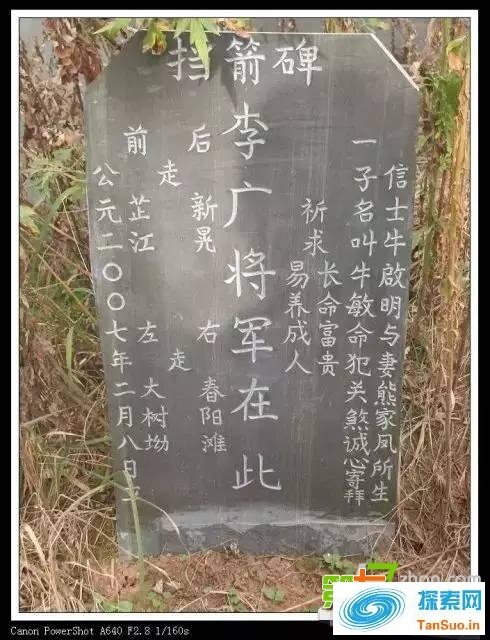 挡箭碑
信士牛啟明与妻熊家凤所生
一子名叫牛敏命犯关煞诚心寄拜
祈求长命富贵
易养成人
李广将军在此
后走新晃 右走春阳滩
前走芷江 左走大树坳
公元二〇〇七年二月八日立
Canon PowerShot A640 F2.8 1/160s
探索网
TanSuo.in